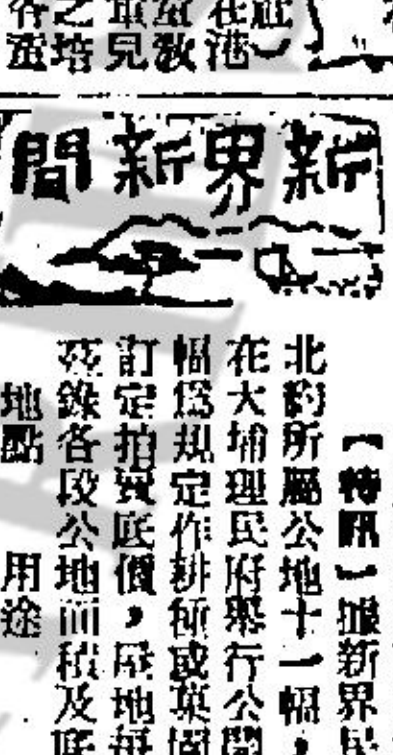 港
教
見
培
之
新界新聞
【特訊】據新界民
北約所屬公地十一幅，
在大埔理民府舉行公開
幅爲規定作耕種或菓園
訂定拍賣底價，屋地每
茲錄各段公地面積及底
地點　用途